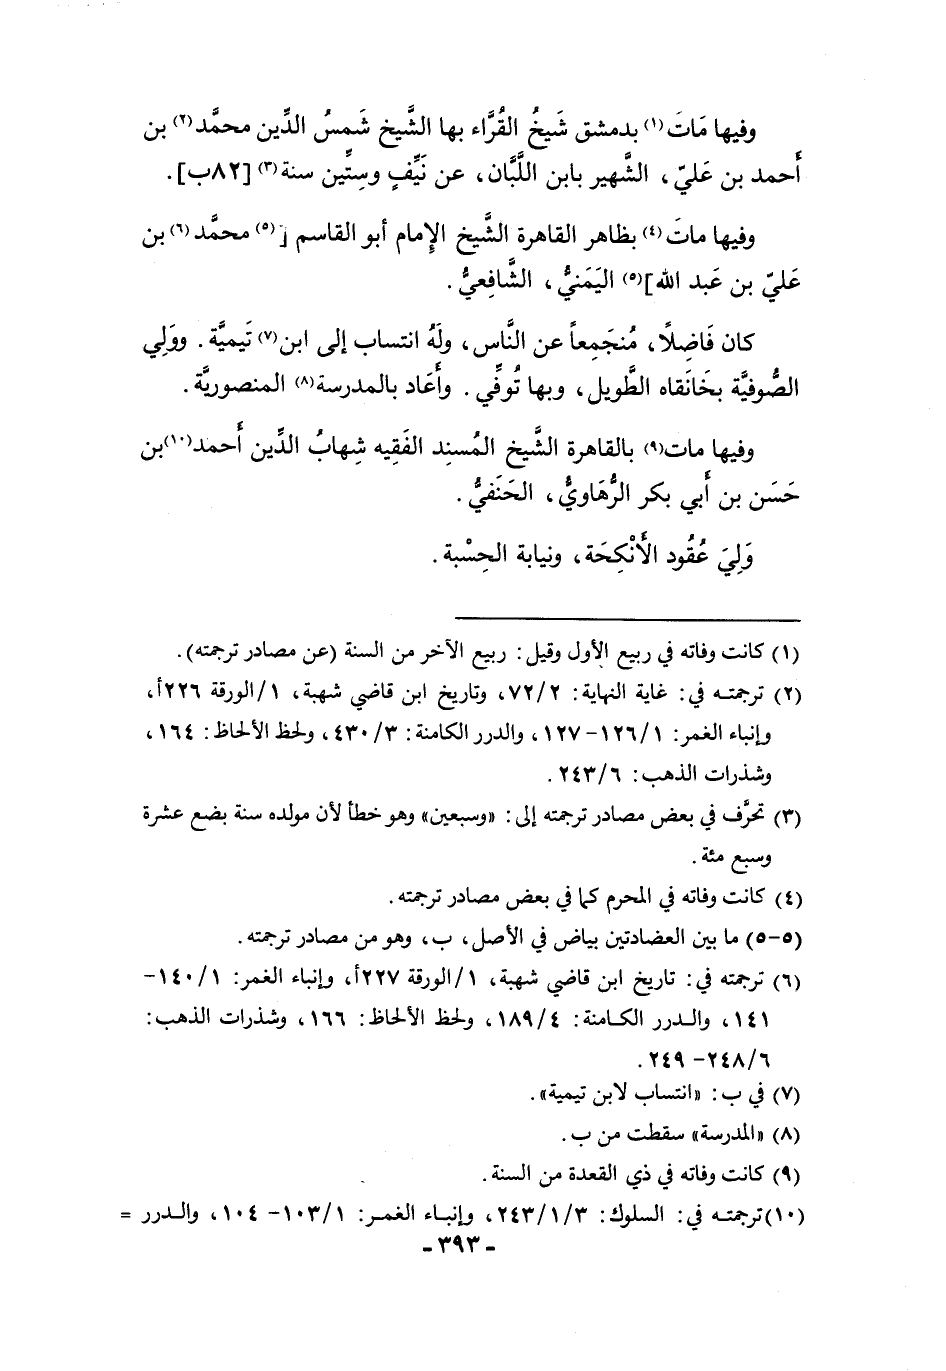 وفيها مَاتَ(١) بدمشق شَيخُ القُرَّاء بها الشَّيخ شَمسُ الدِّين محمَّد(٢) بن
أحمد بن عَليّ، الشَّهير بابن اللَّبَّان، عن نَيِّفٍ وسِتِّين سنة(٣) [٨٢ب].
وفيها ماتَ(٤) بظاهر القاهرة الشَّيخ الإمام أبو القاسم [(٥) محمَّد(٦) بن
عَليّ بن عَبد الله](٥) اليَمَنيُّ، الشَّافِعيُّ.
كان فَاضِلًا، مُنجَمِعاً عن النَّاس، ولَهُ انتساب إلى ابن(٧) تَيميَّة. ووَلي
الصُّوفيَّة بخَانَقاه الطَّويل، وبها تُوفِّي. وأَعَاد بالمدرسة(٨) المنصوريَّة.
وفيها مات(٩) بالقاهرة الشَّيخ المُسنِد الفَقِيه شِهابُ الدِّين أَحمد(١٠)بن
حَسَن بن أَبي بكر الرُّهَاويُّ، الحَنَفيُّ.
وَلِيَ عُقُود الأَنْكِحَة، ونيابة الحِسْبة.
(١) كانت وفاته في ربيع الأول وقيل: ربيع الآخر من السنة (عن مصادر ترجمته).
(٢) ترجمتـه في: غاية النهاية: ٧٢/٢، وتاريخ ابن قاضي شهبة، ١/الورقة ٢٢٦أ،
وإنباء الغمر: ١٢٦/١-١٢٧، والدرر الكامنة: ٤٣٠/٣، ولحظ الألحاظ: ١٦٤،
وشذرات الذهب: ٢٤٣/٦.
(٣) تحرَّف في بعض مصادر ترجمته إلى: «وسبعين» وهو خطأ لأن مولده سنة بضع عشرة
وسبع مئة.
(٤) كانت وفاته في المحرم كما في بعض مصادر ترجمته.
(٥-٥) ما بين العضادتين بياض في الأصل، ب، وهو من مصادر ترجمته.
(٦) ترجمته في: تاريخ ابن قاضي شهبة، ١/الورقة ٢٢٧أ، وإنباء الغمر: ١٤٠/١-
١٤١، والـدرر الكـامنة: ١٨٩/٤، ولحظ الألحاظ: ١٦٦، وشذرات الذهب:
٢٤٨/٦-٢٤٩.
(٧) في ب: «انتساب لابن تيمية».
(٨) «المدرسة» سقطت من ب.
(٩) كانت وفاته في ذي القعدة من السنة.
(١٠)ترجمتـه في: السلوك: ٢٤٣/١/٣، وإنبـاء الغمـر: ١٠٣/١-١٠٤، والـدرر =
- ٣٩٣ -